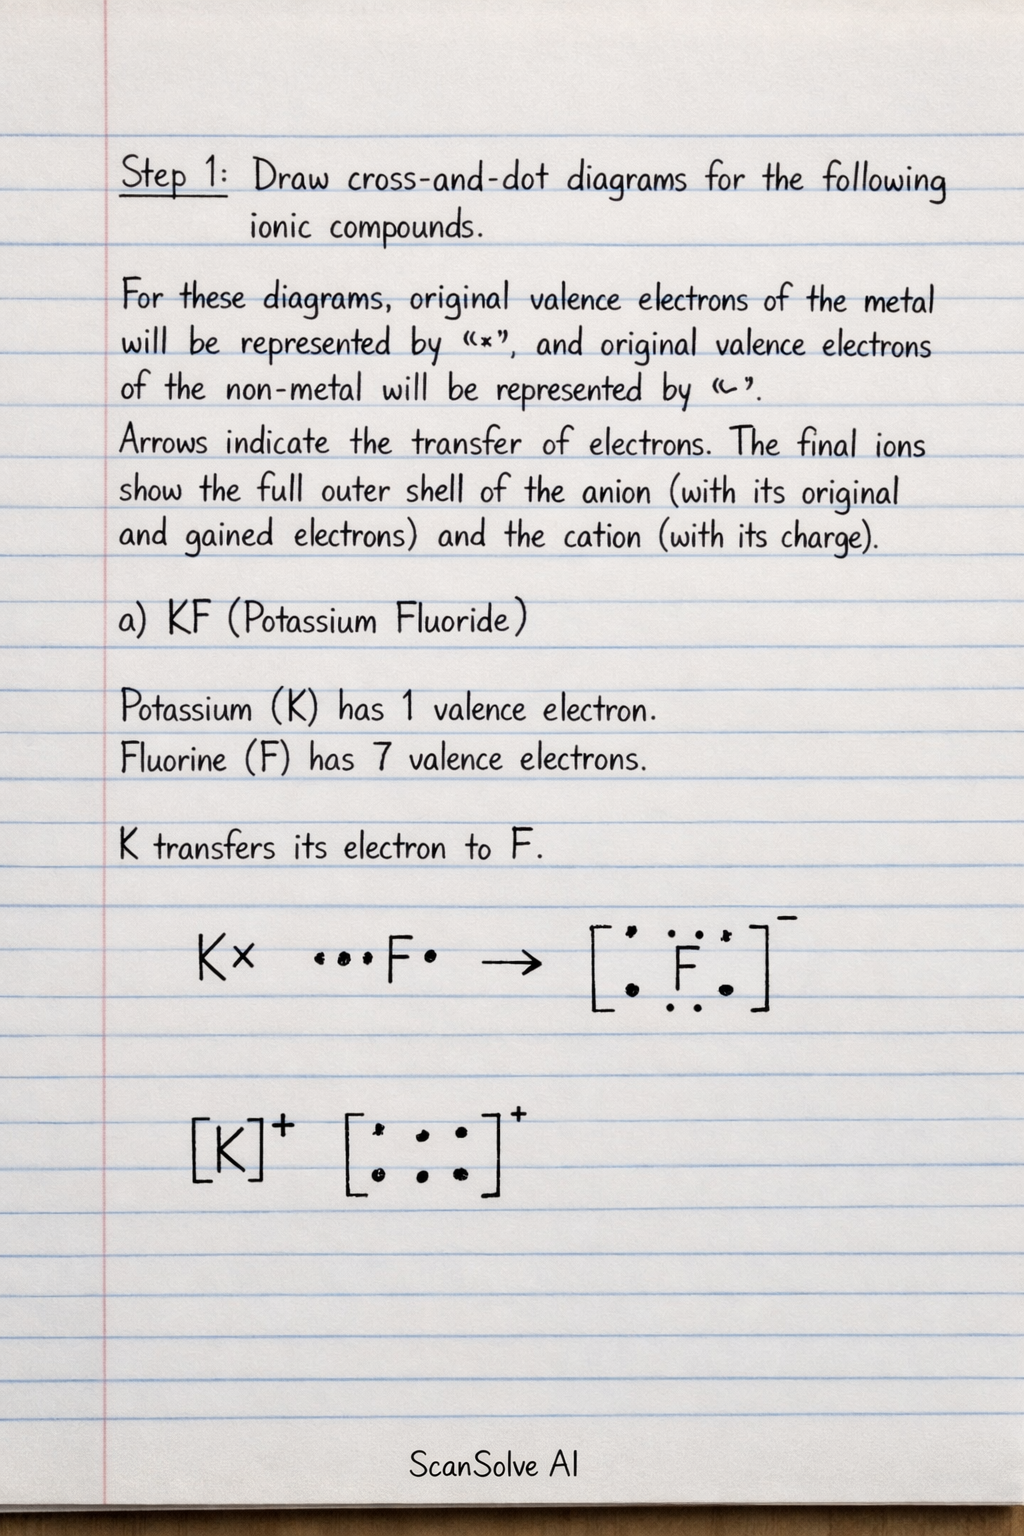 Step 1: Draw cross-and-dot diagrams for the following
ionic compounds.
For these diagrams, original valence electrons of the metal
will be represented by “×”, and original valence electrons
of the non-metal will be represented by “ ”.
Arrows indicate the transfer of electrons. The final ions
show the full outer shell of the anion (with its original
and gained electrons) and the cation (with its charge).
a) KF (Potassium Fluoride)
Potassium (K) has 1 valence electron.
Fluorine (F) has 7 valence electrons.
K transfers its electron to F.
K× •••F• → [F]⁻
[K]⁺ [•••
•••]⁺
ScanSolve AI